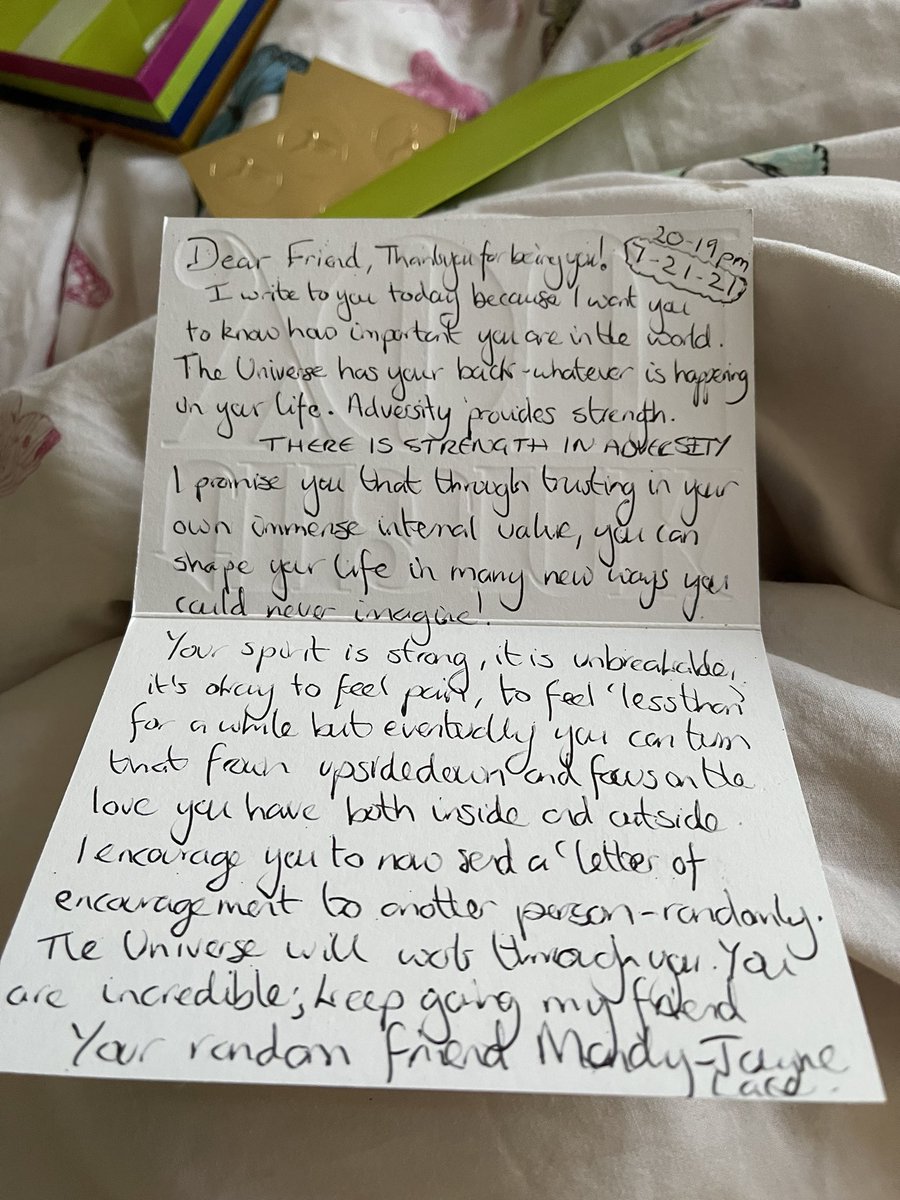 Dear Friend, Thankyou for being you!
20-19pm
7-21-21
I write to you today because I want you
to know how important you are in the world.
The Universe has your back-whatever is happening
in your life. Adversity provides strength.
THERE IS STRENGTH IN ADVERSITY
I promise you that through trusting in your
own immense internal value, you can
shape your life in many new ways you
could never imagine!
Your spirit is strong, it is unbreakable,
it's okay to feel pain, to feel 'less than'
for a while but eventually you can turn
that frown upsidedown and focus on the
love you have both inside and outside.
I encourage you to now send a 'letter of
encouragement to another person-randomly.
The Universe will work through you. You
are incredible; keep going my friend
Your random friend Mandy-Jayne